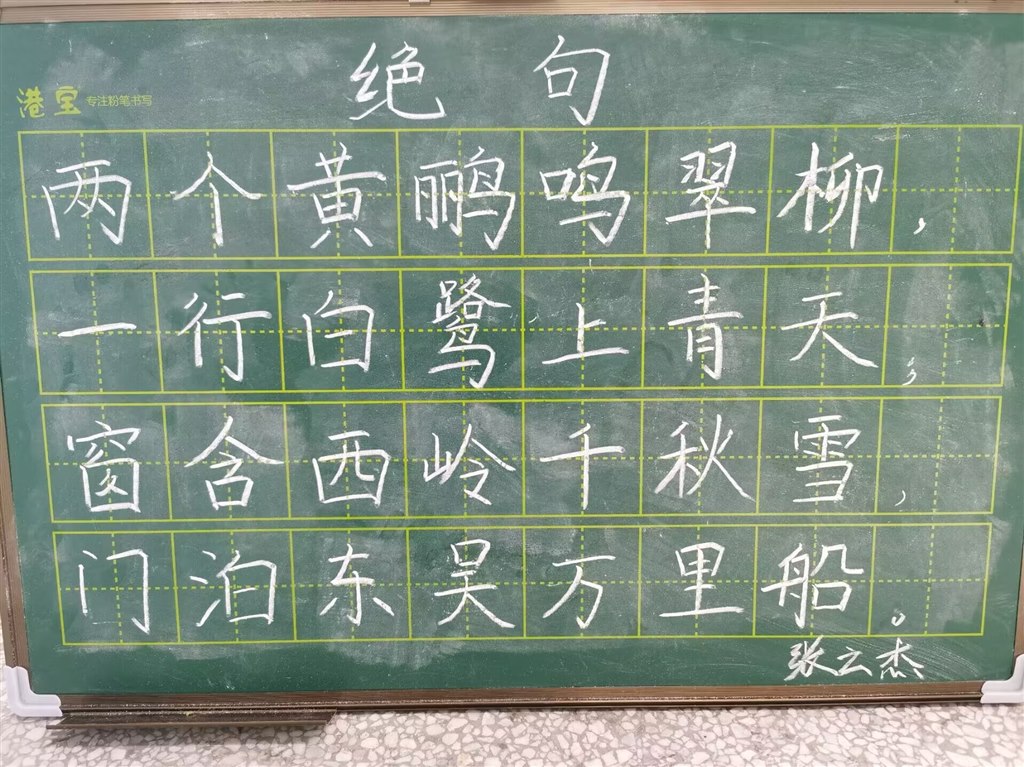 绝句
港宝 专注粉笔书写
两个黄鹂鸣翠柳,
一行白鹭上青天;
窗含西岭千秋雪,
门泊东吴万里船。
张云杰